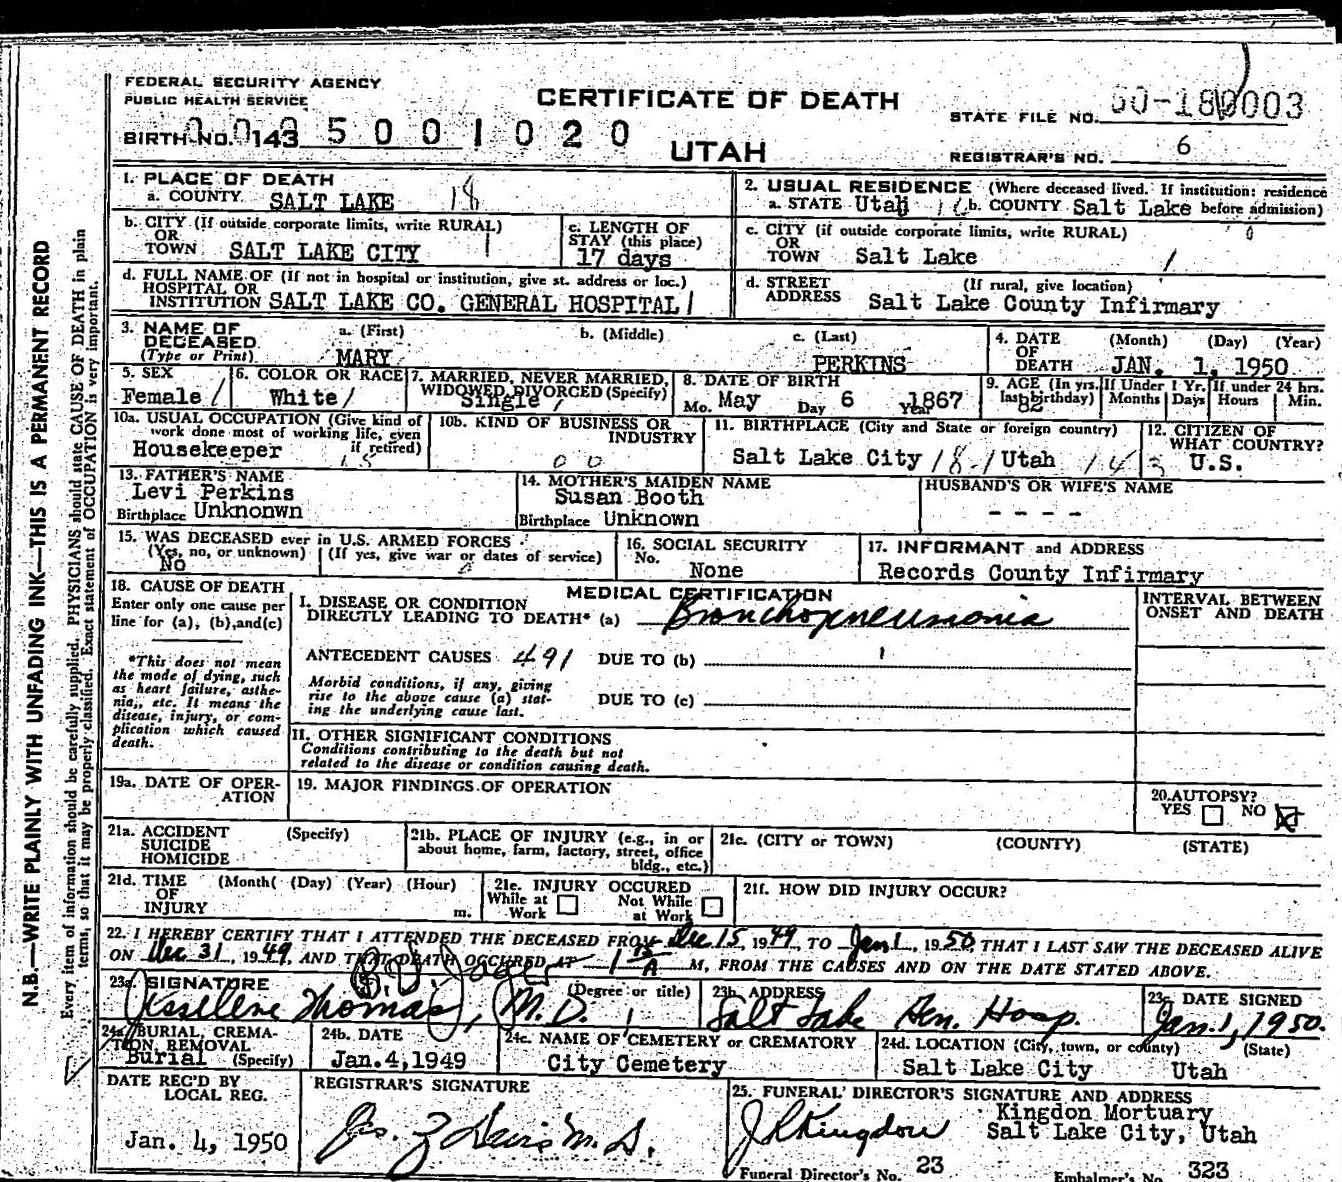 FEDERAL SECURITY AGENCY
PUBLIC HEALTH SERVICE
CERTIFICATE OF DEATH
UTAH
STATE FILE NO.
BIRTH NO. 143 5 0 0 1 0 2 0
REGISTRAR'S NO. 6
1. PLACE OF DEATH
a. COUNTY SALT LAKE 18
2. USUAL RESIDENCE (Where deceased lived. If institution: residence before admission)
a. STATE Utah b. COUNTY Salt Lake
b. CITY (If outside corporate limits, write RURAL)
OR
TOWN SALT LAKE CITY
c. LENGTH OF
STAY (this place)
17 days
c. CITY (if outside corporate limits, write RURAL)
OR
TOWN Salt Lake
d. FULL NAME OF (If not in hospital or institution, give st. address or loc.)
HOSPITAL OR
INSTITUTION SALT LAKE CO. GENERAL HOSPITAL
d. STREET (If rural, give location)
ADDRESS Salt Lake County Infirmary
3. NAME OF DECEASED (Type or Print)
a. (First) b. (Middle) c. (Last)
MARY PERKINS
4. DATE OF DEATH (Month) (Day) (Year)
JAN. 1, 1950
5. SEX
Female
6. COLOR OR RACE
White
7. MARRIED, NEVER MARRIED,
WIDOWED, DIVORCED (Specify)
Single
8. DATE OF BIRTH
Mo. May Day 6 Year 1867
9. AGE (In yrs. last birthday) If Under 1 Yr. If under 24 hrs.
82 Months Days Hours Min.
10a. USUAL OCCUPATION (Give kind of
work done most of working life, even
if retired)
Housekeeper
10b. KIND OF BUSINESS OR
INDUSTRY
0 0
11. BIRTHPLACE (City and State or foreign country)
Salt Lake City 18-1 Utah
12. CITIZEN OF
WHAT COUNTRY?
U.S.
13. FATHER'S NAME
Levi Perkins
Birthplace Unknonwn
14. MOTHER'S MAIDEN NAME
Susan Booth
Birthplace Unknown
HUSBAND'S OR WIFE'S NAME
- - - -
15. WAS DECEASED ever in U.S. ARMED FORCES
(Yes, no, or unknown) (If yes, give war or dates of service)
No
16. SOCIAL SECURITY
No.
None
17. INFORMANT and ADDRESS
Records County Infirmary
18. CAUSE OF DEATH
Enter only one cause per
line for (a), (b), and (c)
*This does not mean
the mode of dying, such
as heart failure, asthe-
nia, etc. It means the
disease, injury, or com-
plication which caused
death.
MEDICAL CERTIFICATION
I. DISEASE OR CONDITION
DIRECTLY LEADING TO DEATH* (a) Bronchopneumonia
ANTECEDENT CAUSES 491 DUE TO (b)
Morbid conditions, if any, giving
rise to the above cause (a) stat-
ing the underlying cause last.
DUE TO (c)
II. OTHER SIGNIFICANT CONDITIONS
Conditions contributing to the death but not
related to the disease or condition causing death.
INTERVAL BETWEEN
ONSET AND DEATH
19a. DATE OF OPER-
ATION
19. MAJOR FINDINGS OF OPERATION
20. AUTOPSY?
YES NO
21a. ACCIDENT (Specify)
SUICIDE
HOMICIDE
21b. PLACE OF INJURY (e.g., in or
about home, farm, factory, street, office
bldg., etc.)
21c. (CITY or TOWN) (COUNTY) (STATE)
21d. TIME (Month( (Day) (Year) (Hour)
OF
INJURY m.
21e. INJURY OCCURED
While at Work Not While at Work
21f. HOW DID INJURY OCCUR?
22. I HEREBY CERTIFY THAT I ATTENDED THE DECEASED FROM Dec 15, 1949, TO Jan 1, 1950, THAT I LAST SAW THE DECEASED ALIVE
ON Dec 31, 1949, AND THAT DEATH OCCURED AT 1 15 A M, FROM THE CAUSES AND ON THE DATE STATED ABOVE.
23a. SIGNATURE (Degree or title)
Thomas, M.D.
23b. ADDRESS
Salt Lake Gen. Hosp.
23c. DATE SIGNED
Jan. 1, 1950.
24a. BURIAL, CREMA-
TION, REMOVAL
Burial (Specify)
24b. DATE
Jan.4,1949
24c. NAME OF CEMETERY or CREMATORY
City Cemetery
24d. LOCATION (City, town, or county) (State)
Salt Lake City Utah
DATE REC'D BY
LOCAL REG.
Jan. 4, 1950
REGISTRAR'S SIGNATURE
25. FUNERAL DIRECTOR'S SIGNATURE AND ADDRESS
J R Kingdon
Kingdon Mortuary
Salt Lake City, Utah
Funeral Director's No. 23 Embalmer's No. 323
N.B.—WRITE PLAINLY WITH UNFADING INK—THIS IS A PERMANENT RECORD
Every item of information should be carefully supplied. PHYSICIANS should state CAUSE OF DEATH in plain
terms, so that it may be properly classified. Exact statement of OCCUPATION is very important.